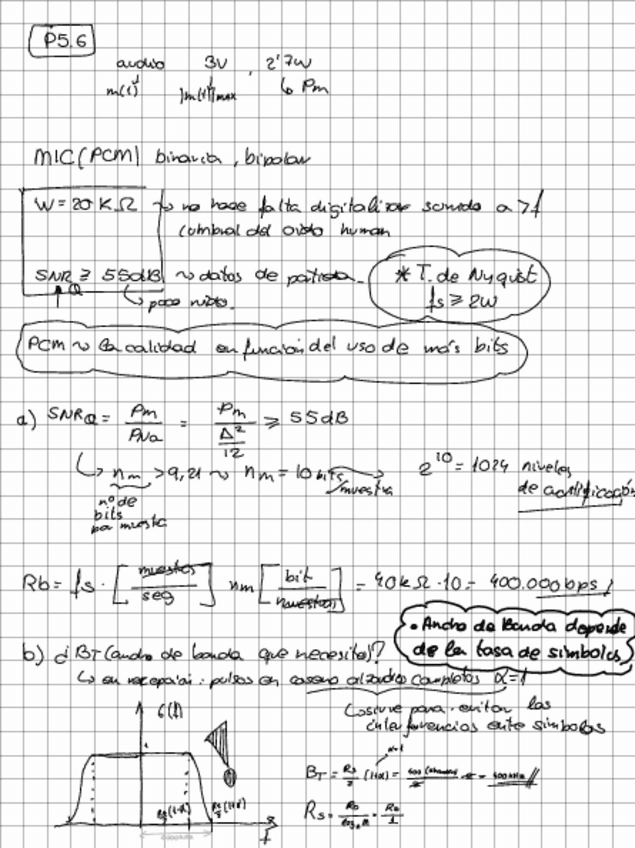 P5.6
audio 3V , 2'7W
m(t) |m(t)|max Pm
MIC (PCM) binaria, bipolar
W = 20 KΩ ~ no hace falta digitalizar sonido a >f
(umbral del oido human
SNRQ ≥ 55dB ~ datos de partida.
poco ruido.
* T. de Nyqist
fs ≥ 2W
PCM ~ la calidad en función del uso de más bits
a) SNRQ = Pm/PNa = Pm/(Δ²/12) ≥ 55dB
nm > 9,21 ~ nm = 10 bits/muestra 2^10 = 1024 niveles
de cantificación
nº de
bits
por muestra
Rb = fs · [muestras/seg] nm [bit/muestras] = 40kΩ · 10 = 400.000 bps
• Ancho de Banda depende
de la tasa de simbolos
b) ¿BT (ancho de banda que necesito)?
en recepción: pulsos en coseno alzados completos α=1
sirve para evitar las
interferencias entre simbolos
G(f)
BT = Rs/2 (1+α) =
Rs/2(1-α) Rs/2(1+α)
Rs = Rb/log2 M = Rb/1
f